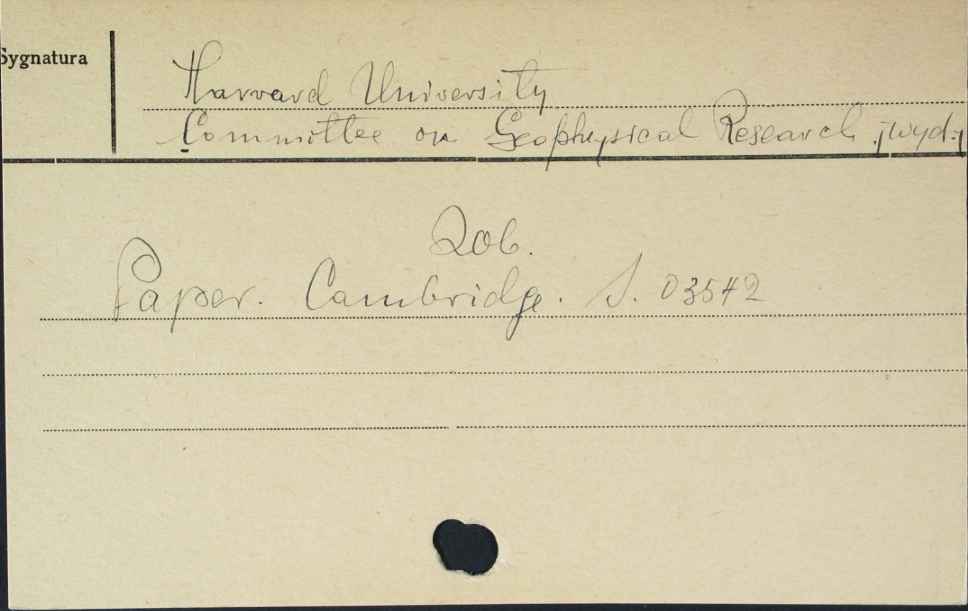 Sygnatura
Harvard University
Committee on Geophysical Research /wyd./
Zob.
Paper. Cambridge. S. 03542